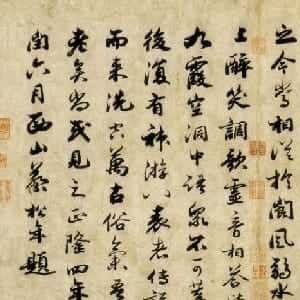 今當相從於閬風弱水
上醉笑調歌靈音相答
九霞空洞中語眾不可
後復有神遊八表者傳
而來洗空萬古俗氣
老矣尚或見之正隆四年
閏六月西山蔡松年題